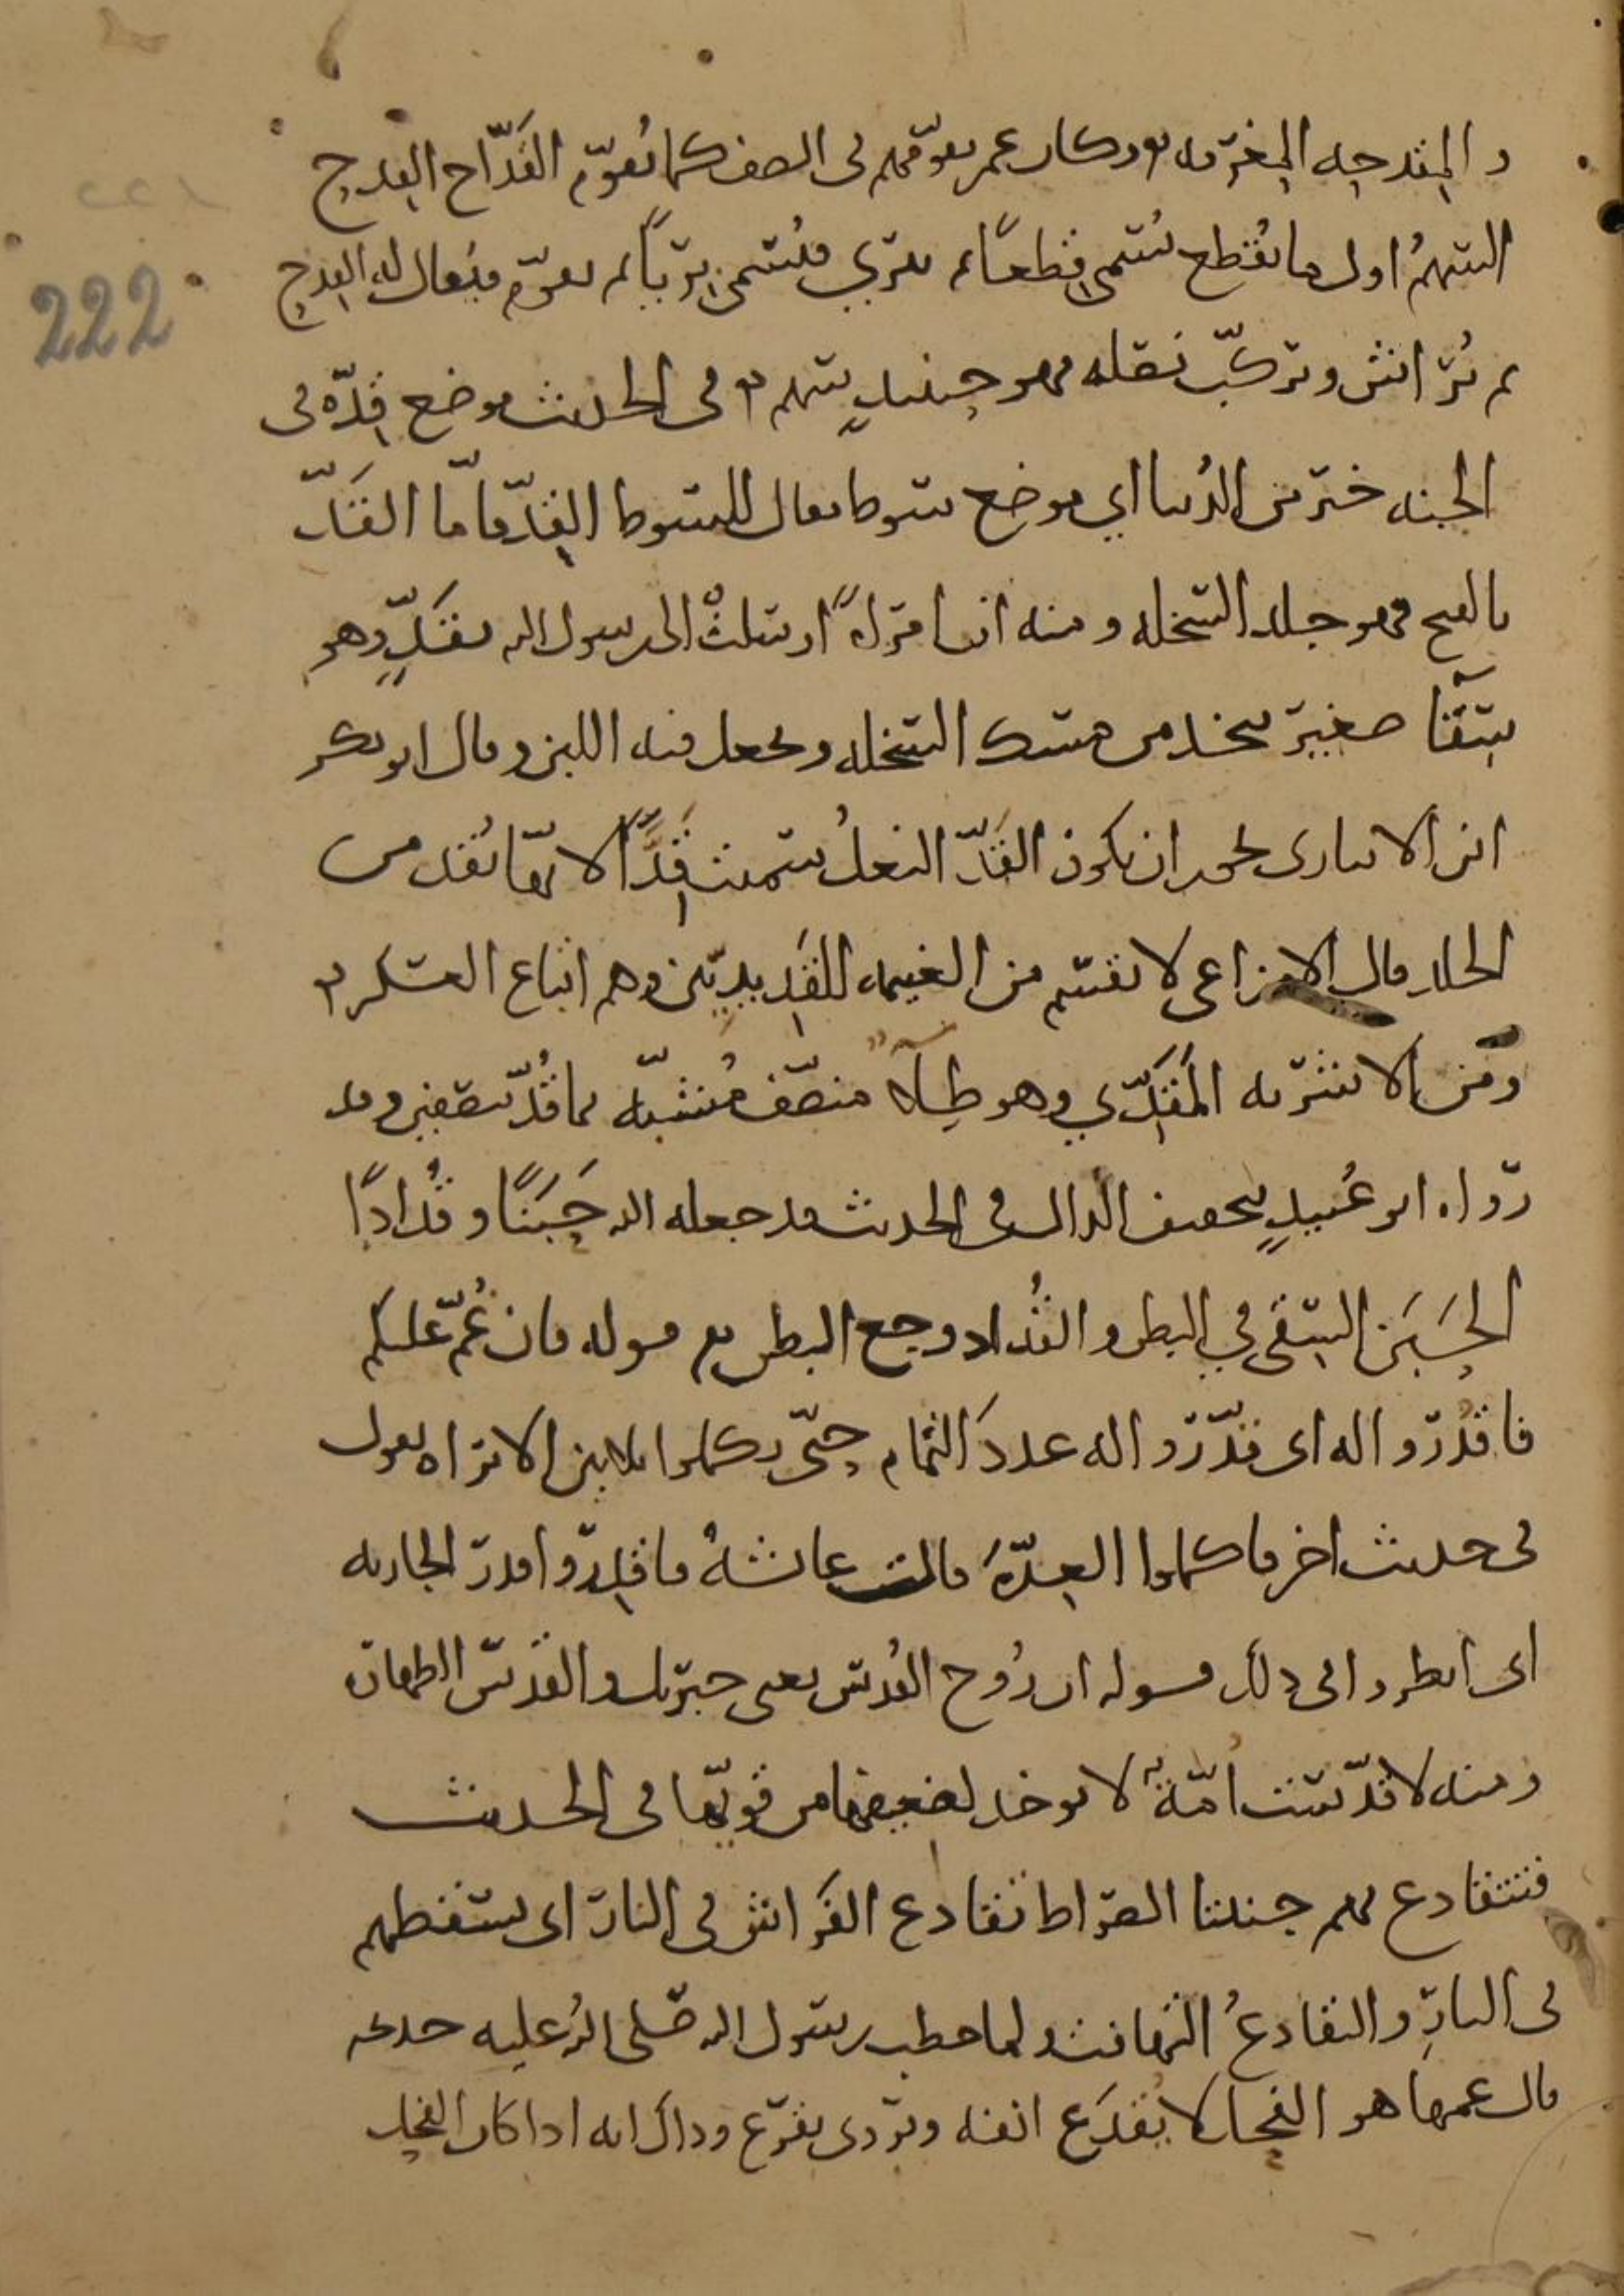 والمقدحه المغرفه وكان عمر يقوّمهم في الصف كما يُقوّم القَدّاح القِدح
السهمُ اول ما يُقطع يُسمى قِطعًا ثم يبرى فيُسمى بَرِيًّا ثم يقوّم فيُقال له القِدح
ثم يُراش ويركّب نصله فهو حينئذٍ سهم في الحديث موضع قِدّه في
الجنه خير من الدُنيا اي موضع سوط يقال للسوط القِدّ فامّا القَدّ
بالفتح فهو جلد السخله ومنه ان امراةً ارسلتْ الى رسول الله بقَدٍّ وهو
سِقَاء صغير يتخذ من مسك السخله ويجعل فيه اللبن وقال ابو بكر
ابن الانباري يجوز ان يكون القَدّ النعلُ سميت قِدًّا لانها تُقد من
الجلد قال الاوزاعي لا يقسم من الغنيمه للقَدِيديّين وهم اتباع العسكر
ومن الاشربه المَقَدّي وهو طِلاء منصّف مُشبّه بما قُدّ بنصفين وقد
رواه ابو عُبيدٍ بتخفيف الدال في الحديث فدجعله الله حَبَنًا وقُدادًا
الحَبَن السِقي في البطن والقُداد وجع البطن قوله فان غُمّ عليكم
فاقدُروا له اى قدّروا له عددَ التمام حتّى يكملوا ثلاثين الا تراه يقول
في حديث اخر فاكملوا العِدّه قالت عائشةُ فاقدِروا قدر الجاريه
اى انظروا في ذلك قوله ان رُوح القُدس يعني جبريل والقدس الطهاره
ومنه لا قُدّست امّةٌ لا يوخذ لضعيفها من قويّها في الحديث
فتتقادع بهم جنبتا الصراط تقادع الفَراش في النار اى يسقطهم
في النارِ والتقادعُ التهافت ولما خطب رسول الله صلى الله عليه خديجه
قال عمها هو الفحل لا يُقدَع انفه ويروى يقرع وذاك انه اذا كان الفحل
222